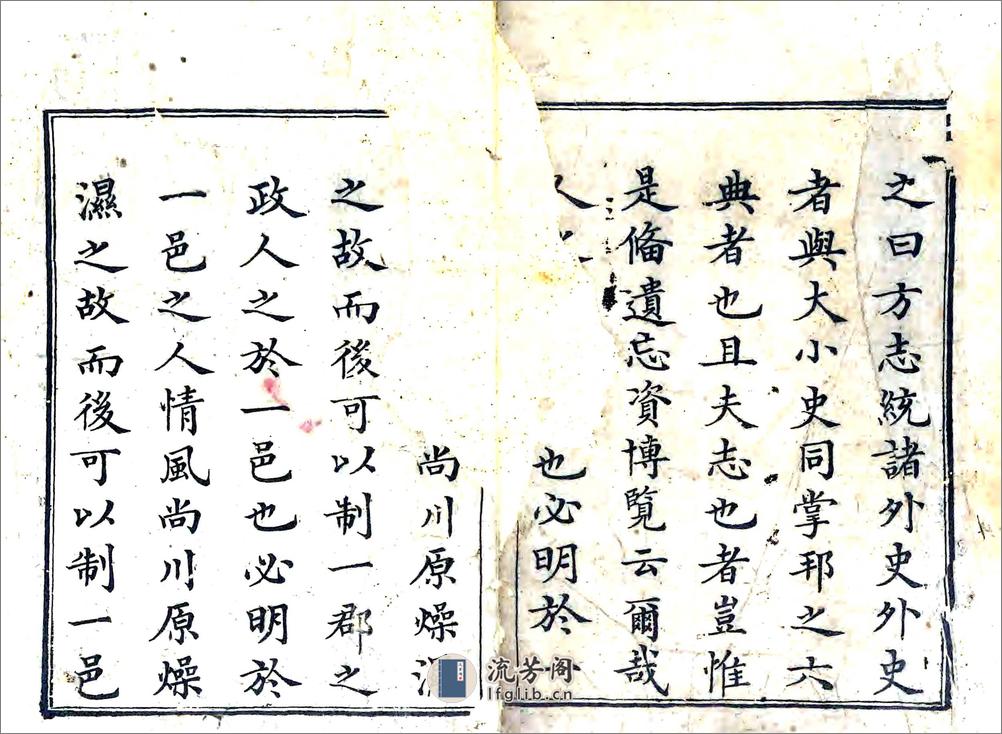 之曰方志統諸外史外史
者與大小史同掌邦之六
典者也且夫志也者豈惟
是偹遺忘資博覧云爾哉
人之 也必明於
尚川原燥濕
之故而後可以制一郡之
政人之於一邑也必明於
一邑之人情風尚川原燥
濕之故而後可以制一邑
流芳阁
lfglib.cn